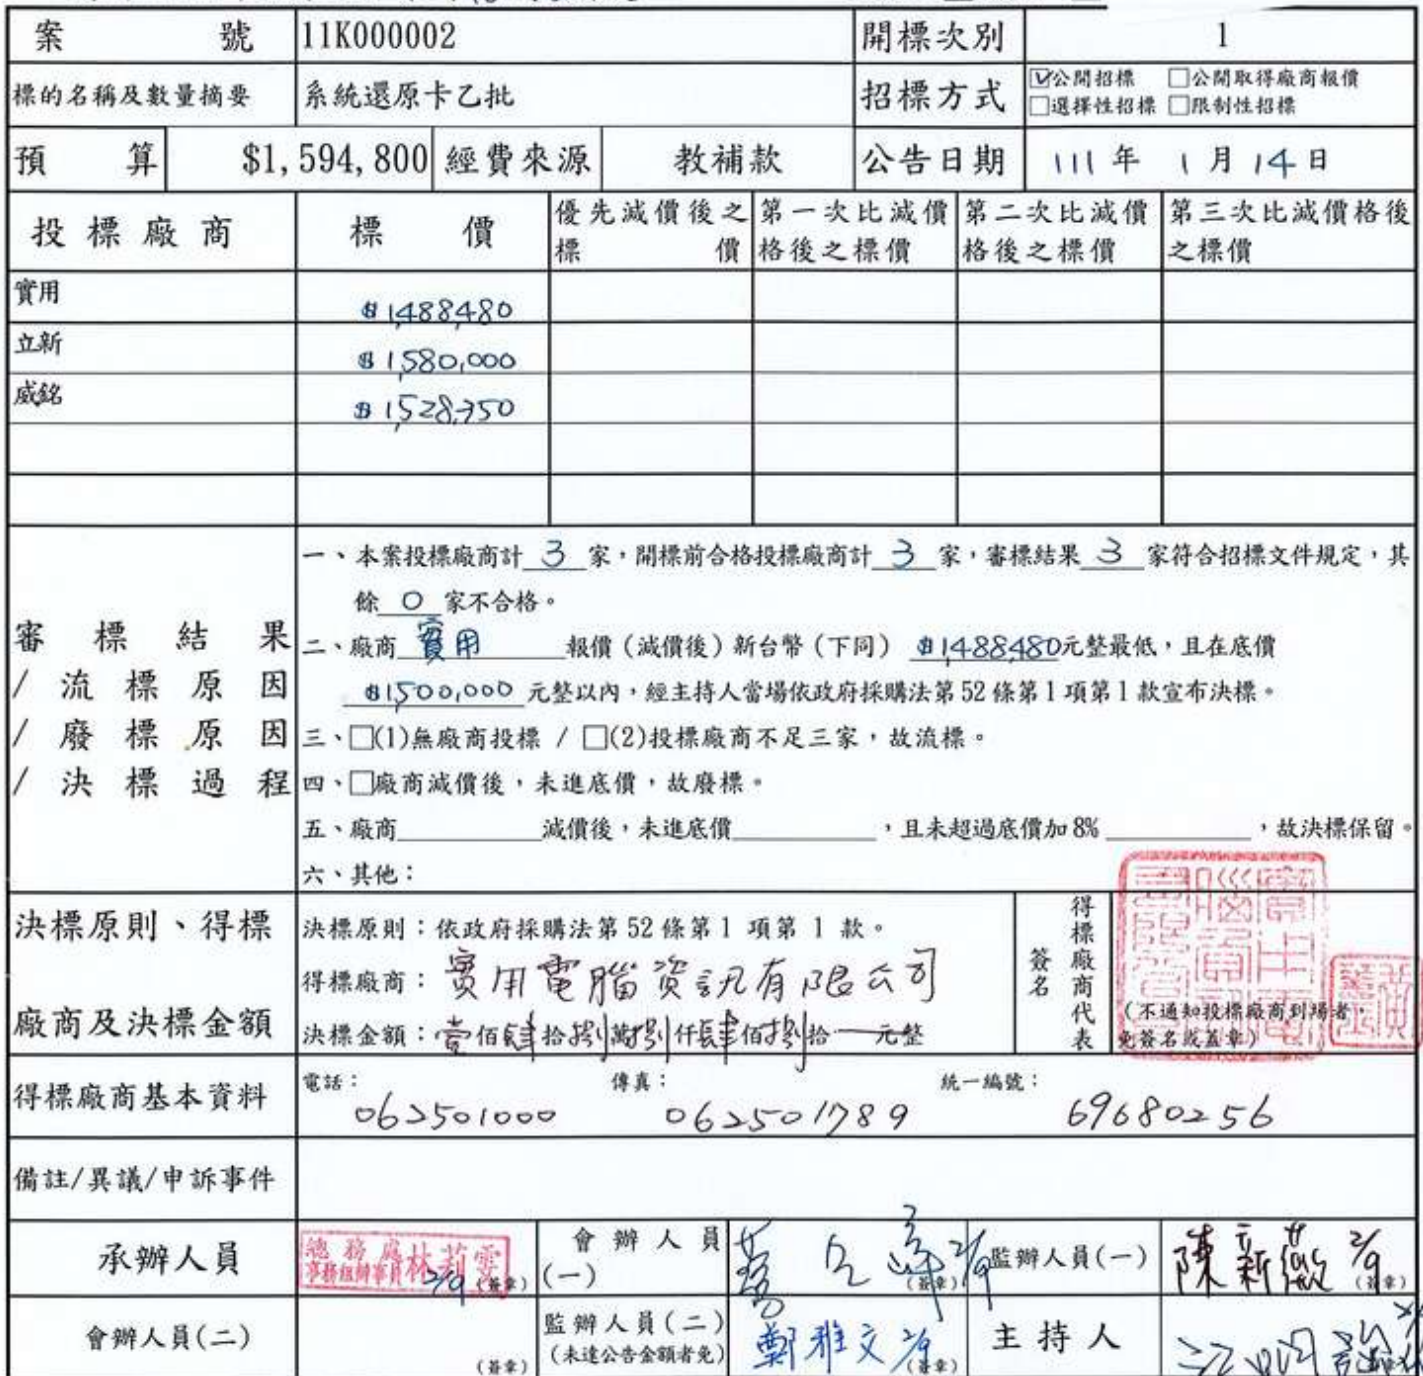 案號 11K000002 開標次別 1
標的名稱及數量摘要 系統還原卡乙批 招標方式 ☑公開招標 □公開取得廠商報價
□選擇性招標 □限制性招標
預算 $1,594,800 經費來源 教補款 公告日期 111 年 1 月 14 日
投標廠商 標價 優先減價後之標價 第一次比減價格後之標價 第二次比減價格後之標價 第三次比減價格後之標價
實用 $1,488,480
立新 $1,580,000
威銘 $1,528,350
審標結果
/流標原因
/廢標原因
/決標過程
一、本案投標廠商計 3 家，開標前合格投標廠商計 3 家，審標結果 3 家符合招標文件規定，其
餘 0 家不合格。
二、廠商 實用 報價（減價後）新台幣（下同） $1,488,480元整最低，且在底價
$1,500,000 元整以內，經主持人當場依政府採購法第 52 條第 1 項第 1 款宣布決標。
三、□(1)無廠商投標 / □(2)投標廠商不足三家，故流標。
四、□廠商減價後，未進底價，故廢標。
五、廠商 減價後，未進底價 ，且未超過底價加 8% ，故決標保留。
六、其他：
決標原則、得標
廠商及決標金額
決標原則：依政府採購法第 52 條第 1 項第 1 款。
得標廠商：實用電腦資訊有限公司
決標金額：壹佰肆拾捌萬捌仟肆佰捌拾元整
得標廠商代表
簽名
（不通知投標廠商到場者，
免簽名或蓋章）
得標廠商基本資料 電話：062501000 傳真：062501789 統一編號：69680256
備註/異議/申訴事件
承辦人員 總務處 事務組辦事員 林莉雲 2/9 (簽章) 會辦人員(一) 2/9 (簽章) 監辦人員(一) 陳新薇 2/9 (簽章)
會辦人員(二) (簽章) 監辦人員(二) (未達公告金額者免) 鄭雅文 2/9 (簽章) 主持人